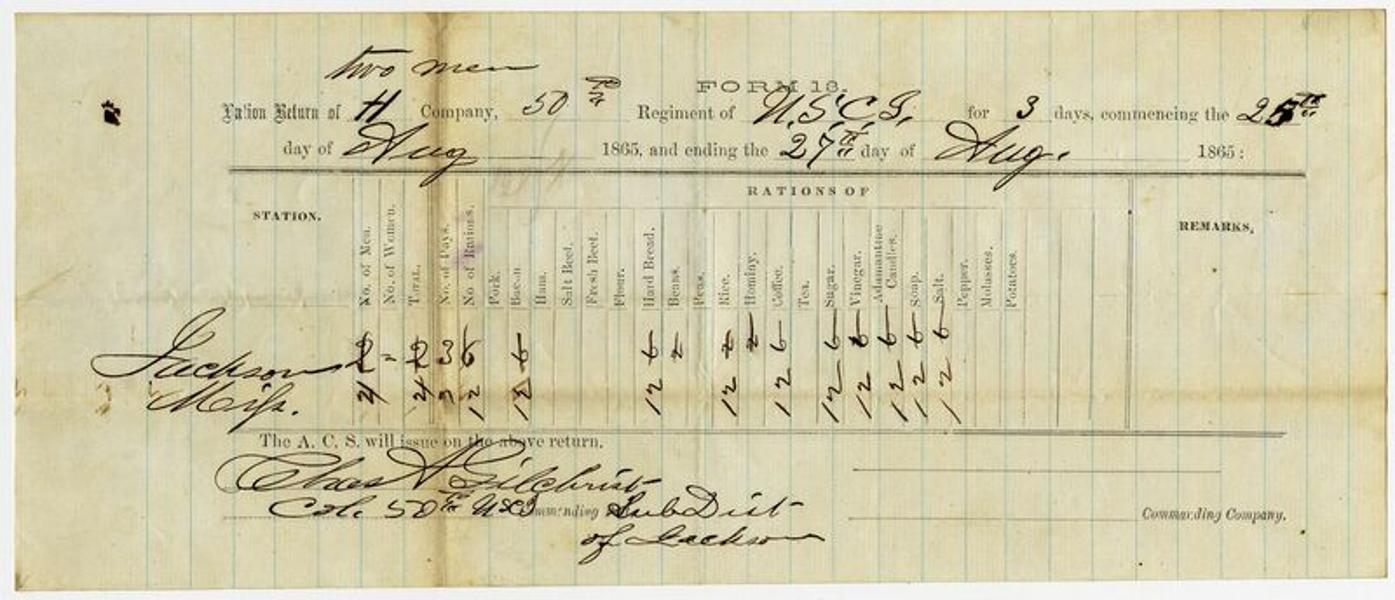 two men
FORM 13.
Ration Return of H Company, 50th Regiment of U.S.C.I. for 3 days, commencing the 25th
day of Aug 1865, and ending the 27th day of Aug. 1865:
RATIONS OF
STATION. No. of Men. No. of Women. Total. No. of Days. No. of Rations. Pork. Bacon. Ham. Salt Beef. Fresh Beef. Flour. Hard Bread. Beans. Peas. Rice. Hominy. Coffee. Tea. Sugar. Vinegar. Adamantine Candles. Soap. Salt. Pepper. Molasses. Potatoes. REMARKS,
Jackson 2 - 2 3 6 6 6 2 2 2 6 6 6 6 6 6
Miss. 4 4 3 12 12 12 12 12 12 12 12 12 12
The A. C. S. will issue on the above return.
Chas A Gilchrist
Col. 50th USC Commending Sub Dist
of Jackson
Commanding Company.